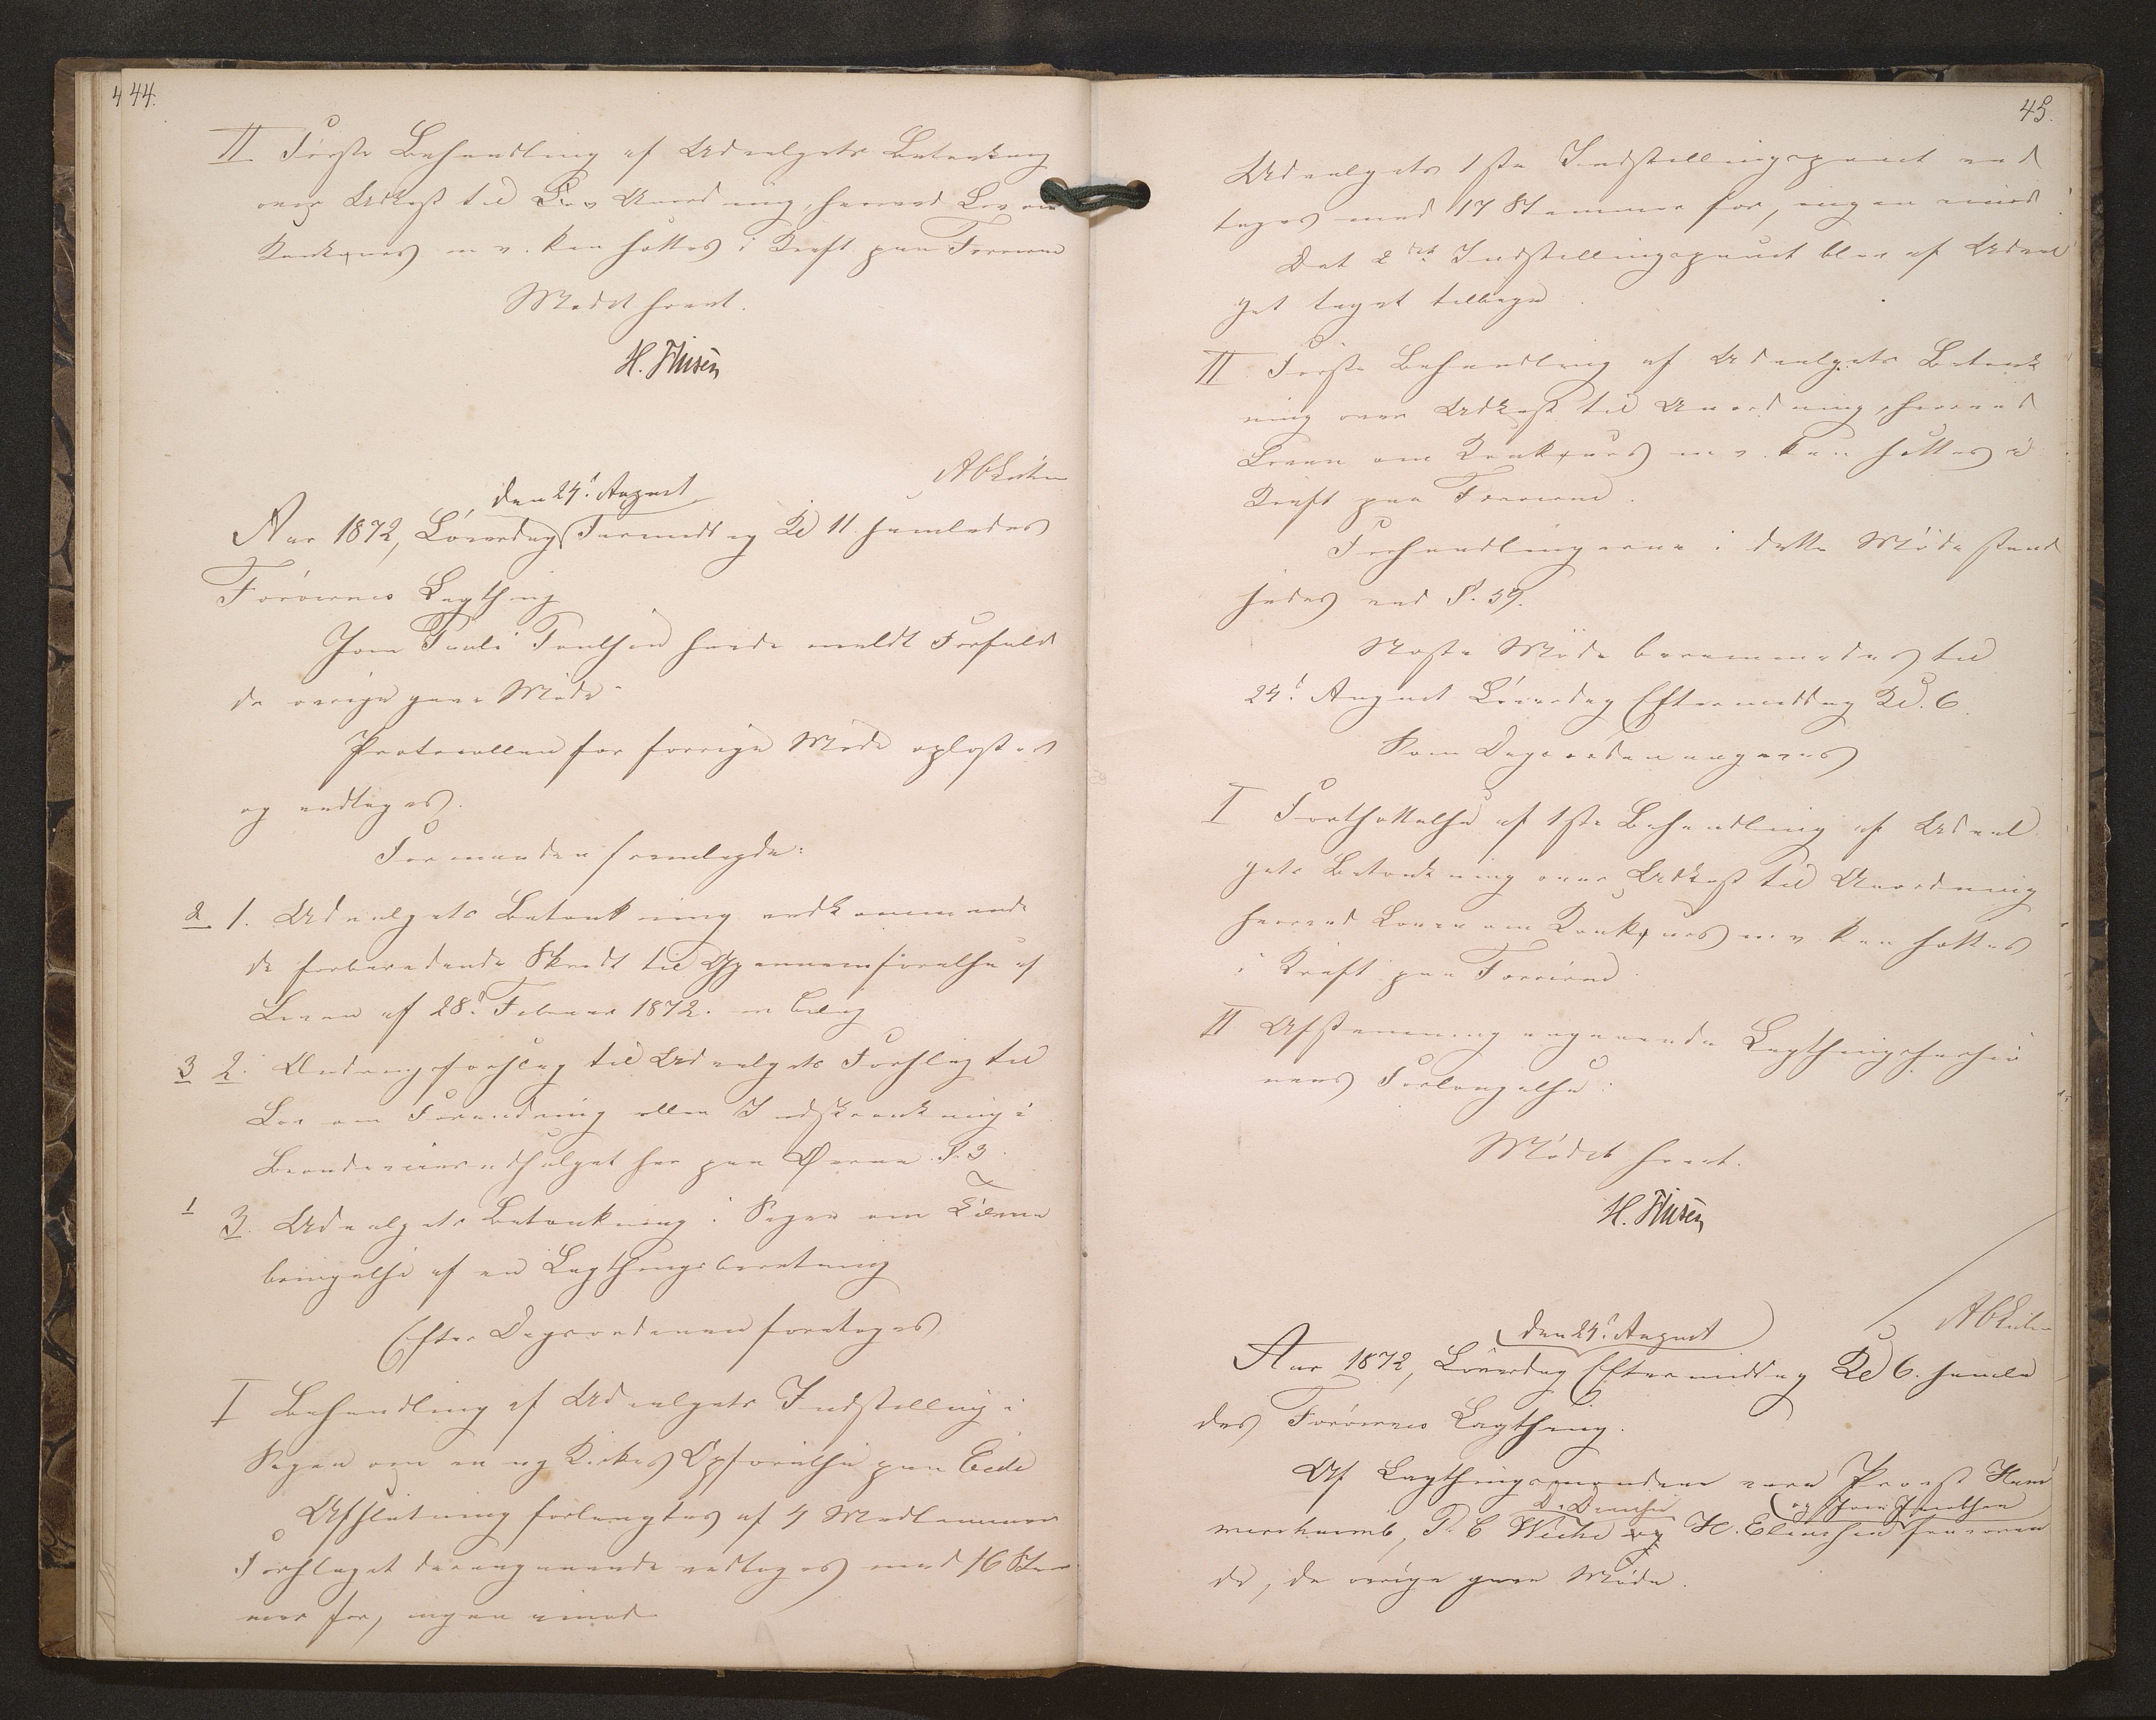 44.
II Første Behandling af Udvalgets Betænkning
over Udkast til Anordning, hvorved Lov om
Konkurs m v. kan sættes i Kraft paa Færøerne
Mødet hævet.
H.
den 24d August
Aar 1872, Løverdag Formiddag Kl 11 samledes
Færøernes Lagthing
Joen Pauli Poulsen havde meldt Forfald
de øvrige gave Møde
Protocollen for forrige Møde oplæstes
og vedtoges.
Formanden fremlagde:
2 1. Udvalgets Betænkning vedkommende
de forberedende Skridt til Gjennemførelse af
Loven af 28d Februar 1872. m Bilag
3 2. Ændringsforslag til Udvalgets Forslag til
Lov om Forandring eller Indskrænkning i
Brændeviinsudsalget her paa Øerne. §. 3
1 3. Udvalgets Betænkning i Sagen om Tilveie
bringelse af en Lagthingsberetning
Efter Dagsordenen foretoges
I Behandling af Udvalgets Indstilling i
Sagen om en ny Kirkes Opførelse paa Eide
Afslutning forlangtes af 4 Medlemmer
Forslaget derangaaende vedtoges med 16 Stem
mer for, ingen imod
45.
Udvalgets 1ste Indstillingspunct ved
toges med 17 Stemmer for, ingen imod.
Det 2det Indstillingspunct blev af Udval
get taget tilbage.
II Første Behandling af Udvalgets Betænk
ning over Udkast til Anordning, hvorved
Loven om Konkurs m v. kan sættes i
Kraft paa Færøerne.
Forhandlingerne i dette Møde stand
sedes ved §. 59.
Næste Møde berammedes til
24d August Løverdag Eftermiddag Kl. 6.
Som Dagsorden angaves
I Fortsættelse af 1ste Behandling af Udval
gets Betænkning over Udkast til Anordning
hvorved Loven om Konkurs m v. kan sættes
i Kraft paa Færøerne.
II Afstemning angaaende Lagthingssessio
nens Forlængelse.
Mødet hævet.
H.
den 24d August
Aar 1872, Løverdag Eftermiddag Kl 6. samle
des Færøernes Lagthing.
Af Lagthingsmændene vare Provst Ham
og Joen Jacobsen
mershaimb, P. C og H. fraværen
de, de øvrige gave Møde.